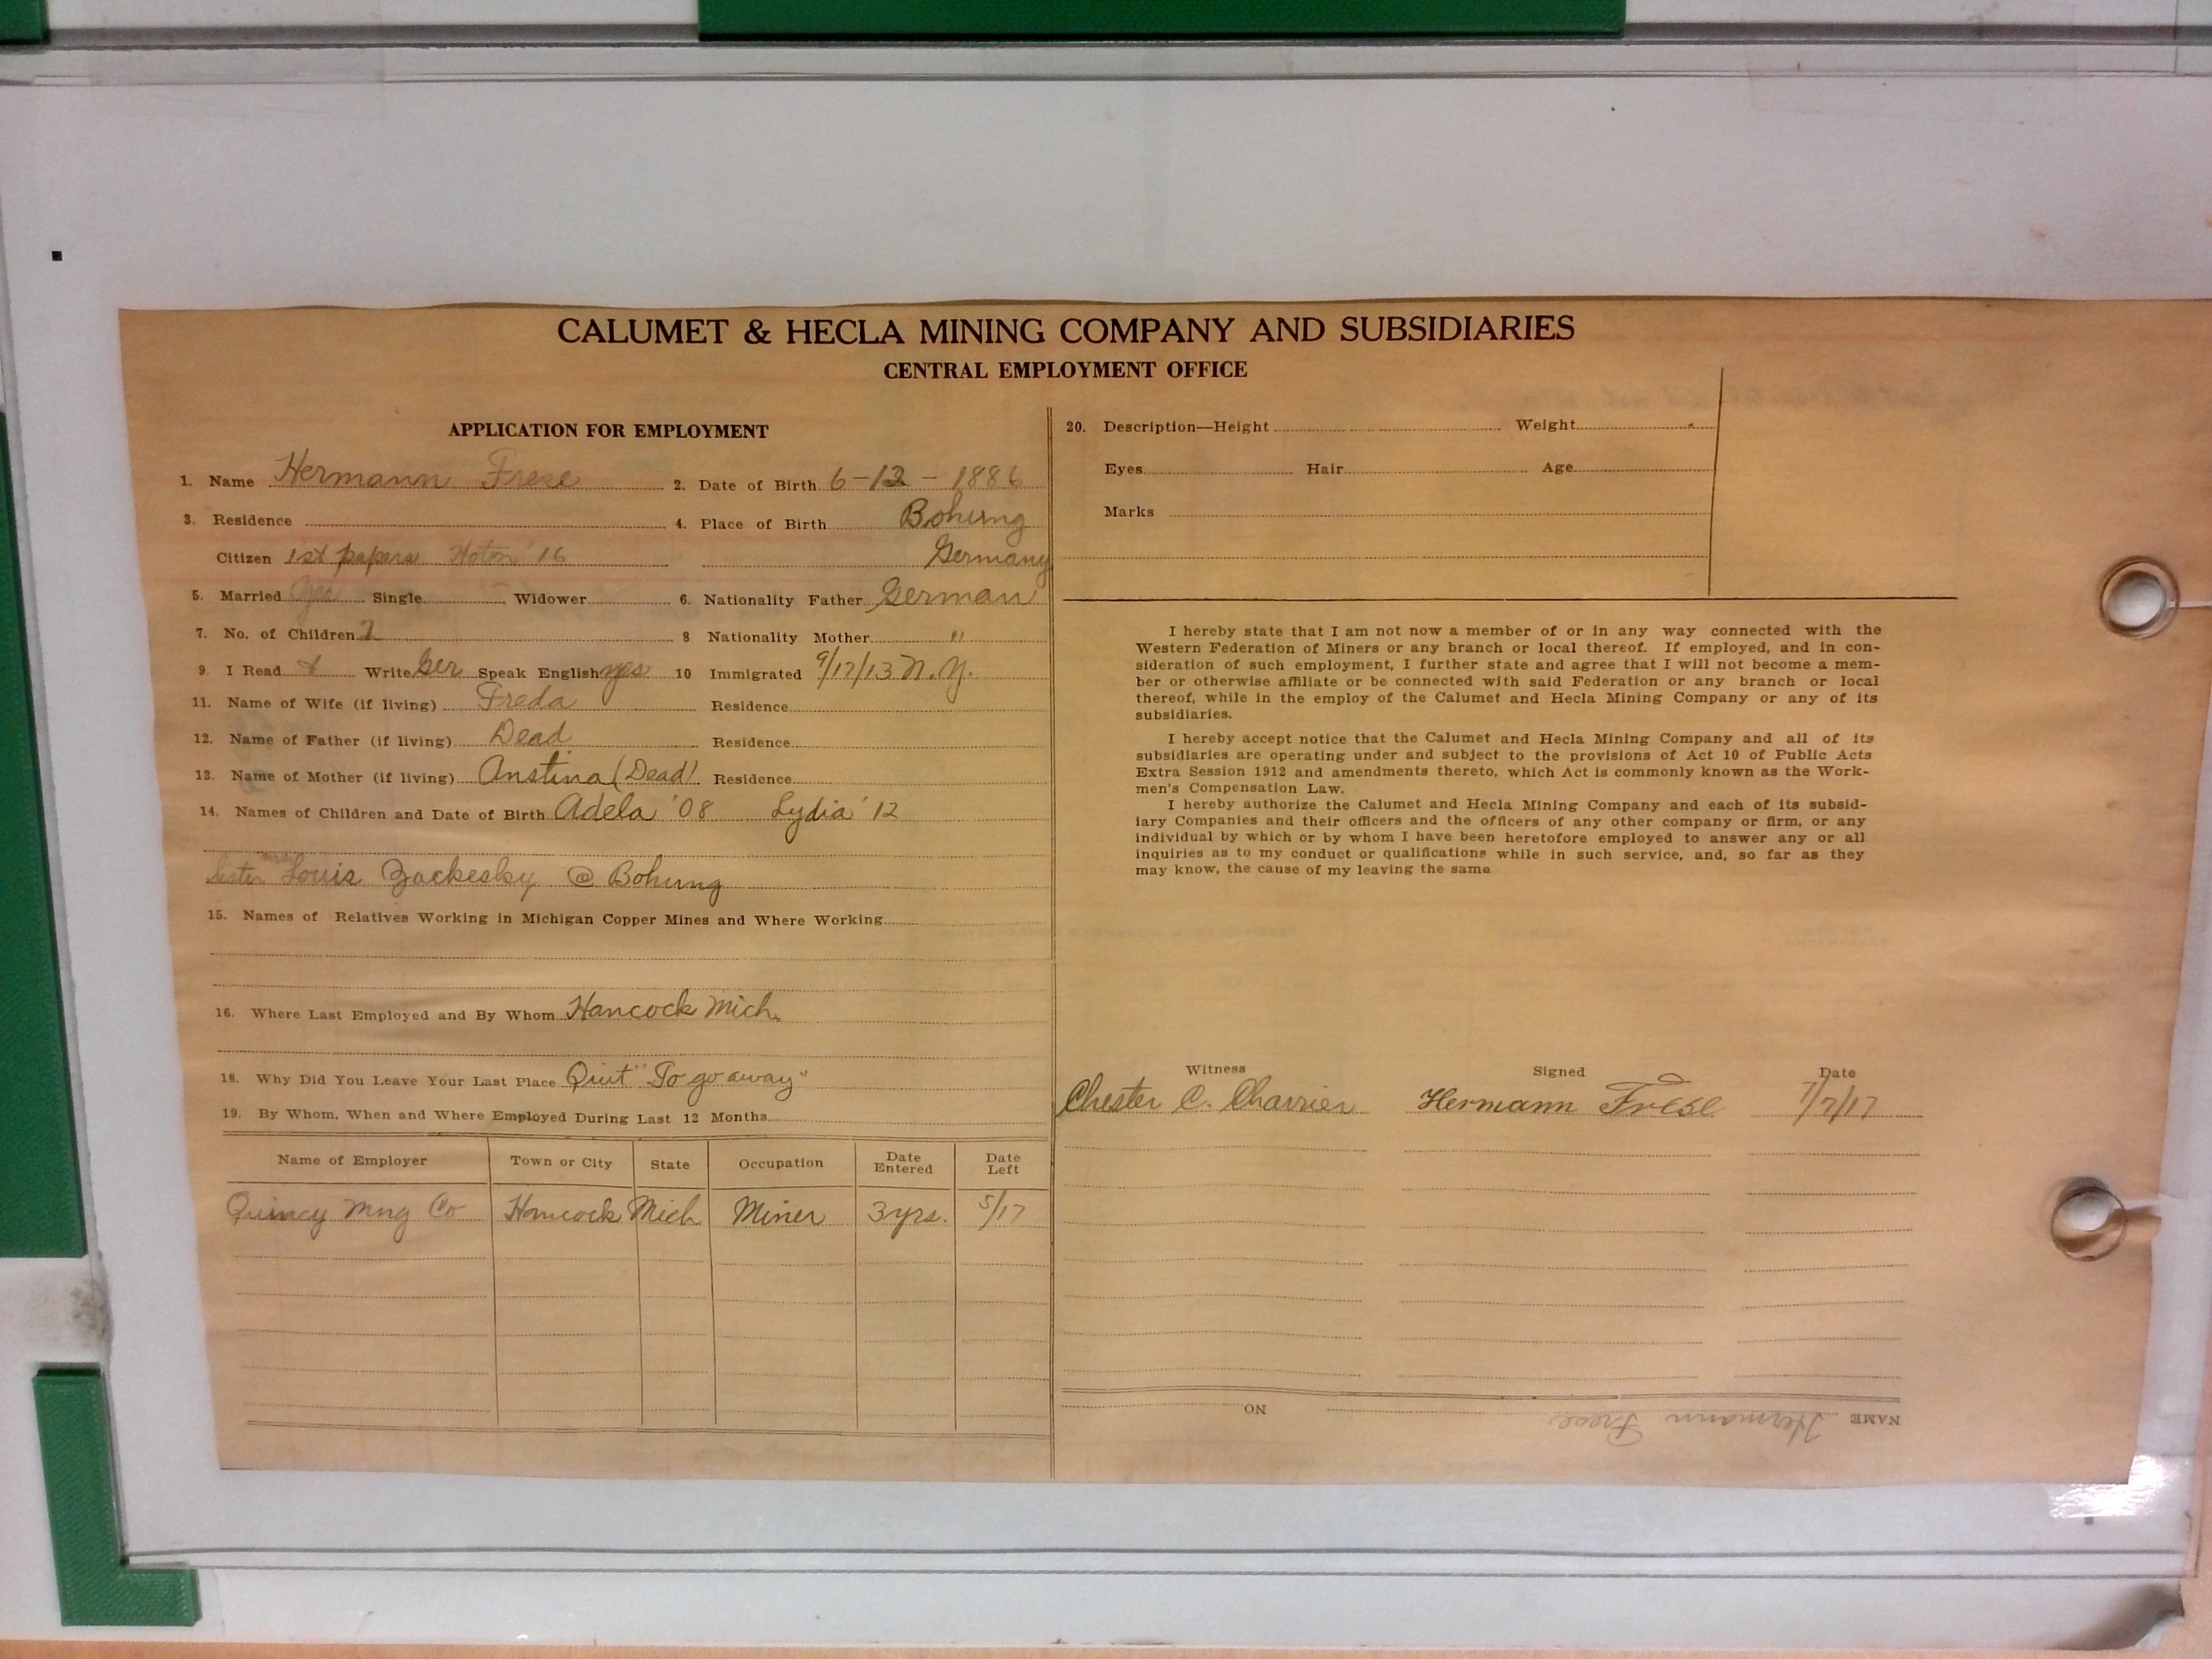 CALUMET & HECLA MINING COMPANY AND SUBSIDIARIES
CENTRAL EMPLOYMENT OFFICE
APPLICATION FOR EMPLOYMENT
1. Name Hermann Frese 2. Date of Birth 6-12-1886
3. Residence 4. Place of Birth Bohung
Citizen 1st papers Hoton '16 Germany
5. Married yes Single Widower 6. Nationality Father German
7. No. of Children 2 8 Nationality Mother "
9. I Read & Write Ger Speak English yes 10 Immigrated 9/17/13 N.Y.
11. Name of Wife (if living) Freda Residence
12. Name of Father (if living) Dead Residence
13. Name of Mother (if living) Anstina (Dead) Residence
14. Names of Children and Date of Birth Adela '08 Lydia '12
Sister Mrs Louis Zackesky @ Bohung
15. Names of Relatives Working in Michigan Copper Mines and Where Working
16. Where Last Employed and By Whom Hancock Mich.
18. Why Did You Leave Your Last Place Quit "To go away"
19. By Whom, When and Where Employed During Last 12 Months
Name of Employer Town or City State Occupation Date Entered Date Left
Quincy Mng Co Hancock Mich Miner 3 yrs. 5/17
20. Description—Height Weight
Eyes Hair Age
Marks
I hereby state that I am not now a member of or in any way connected with the
Western Federation of Miners or any branch or local thereof. If employed, and in con-
sideration of such employment, I further state and agree that I will not become a mem-
ber or otherwise affiliate or be connected with said Federation or any branch or local
thereof, while in the employ of the Calumet and Hecla Mining Company or any of its
subsidiaries.
I hereby accept notice that the Calumet and Hecla Mining Company and all of its
subsidiaries are operating under and subject to the provisions of Act 10 of Public Acts
Extra Session 1912 and amendments thereto, which Act is commonly known as the Work-
men's Compensation Law.
I hereby authorize the Calumet and Hecla Mining Company and each of its subsid-
iary Companies and their officers and the officers of any other company or firm, or any
individual by which or by whom I have been heretofore employed to answer any or all
inquiries as to my conduct or qualifications while in such service, and, so far as they
may know, the cause of my leaving the same
Witness Signed Date
Chester C. Charrier Hermann Frese 7/7/17
NAME Hermann Frese NO